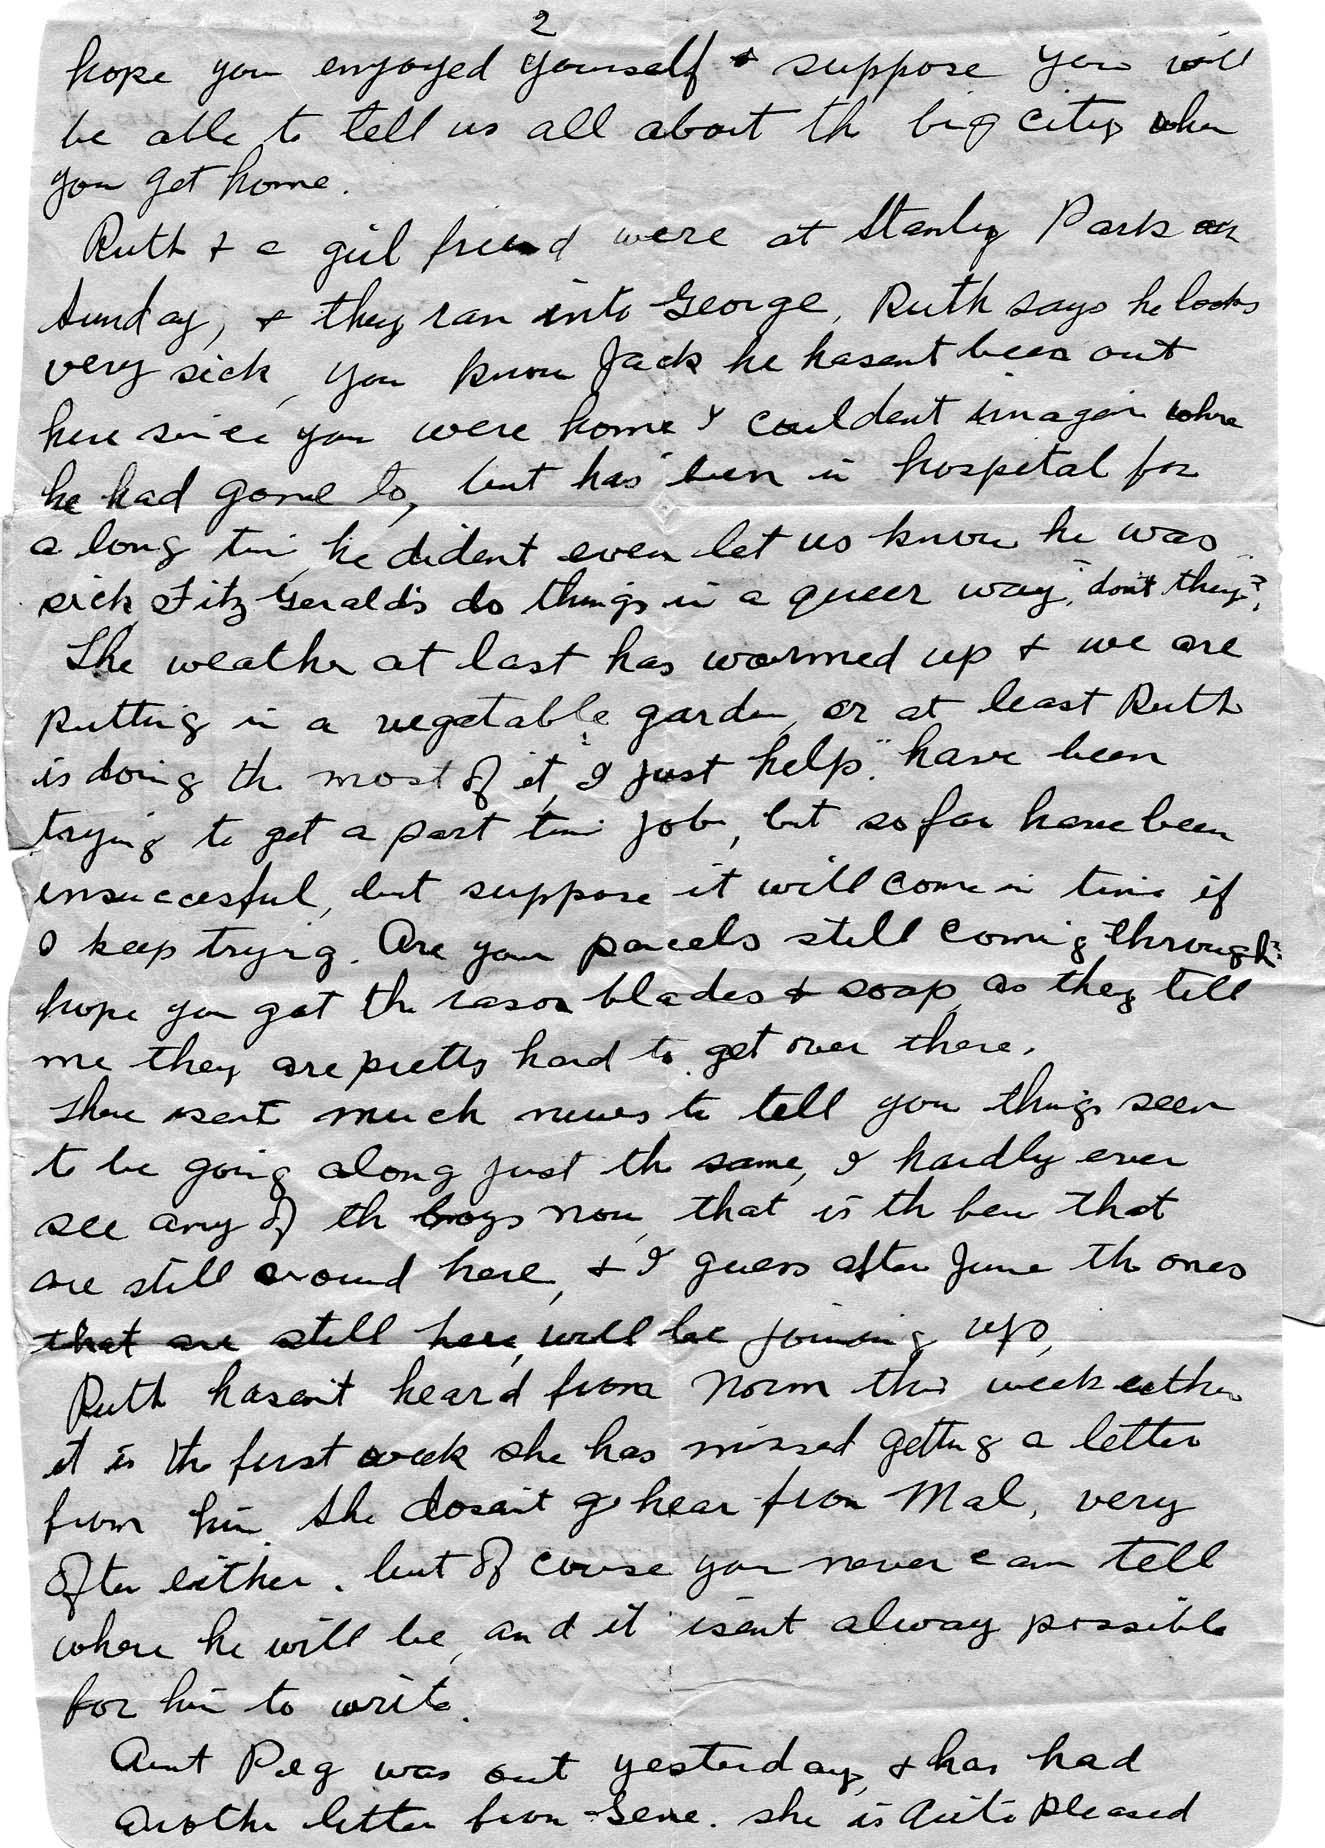 2
hope you enjoyed yourself + suppose you will
be able to tell us all about th big city when
you get home.
Ruth + a girl friend were at Stanley Park on
Sunday, + they ran into George, Ruth says he looks
very sick, you know Jack he hasent been out
here since you were home + couldent imagin where
he had gone to, but has been in hospital for
a long time, he dident even let us know he was
sick, Fitz Gerald's do things in a queer way, "dont they?"
The weather at last has warmed up + we are
putting in a vegetable garden, or at least Ruth
is doing th most of it, "I just help." have been
trying to get a part time job, but so far have been
unsuccesful, but suppose it will come in time if
I keep trying. Are your parcels still coming through?
hope you got th rasor blades + soap, as they tell
me they are pretty hard to get over there.
There isent much news to tell you things seem
to be going along just th same, I hardly ever
see any of th boys now, that is th few that
are still around here, + I guess after June th ones
that are still here, will be joining up,
Ruth hasent heard from Norm this week either
it is th first week she has missed getting a letter
from him. She dosent hear from Mal, very
often either. but of course you never can tell
where he will be, and it isent alway possible
for him to write.
Aunt Peg was out yesterday, + has had
another letter from Gene. she is quite pleased